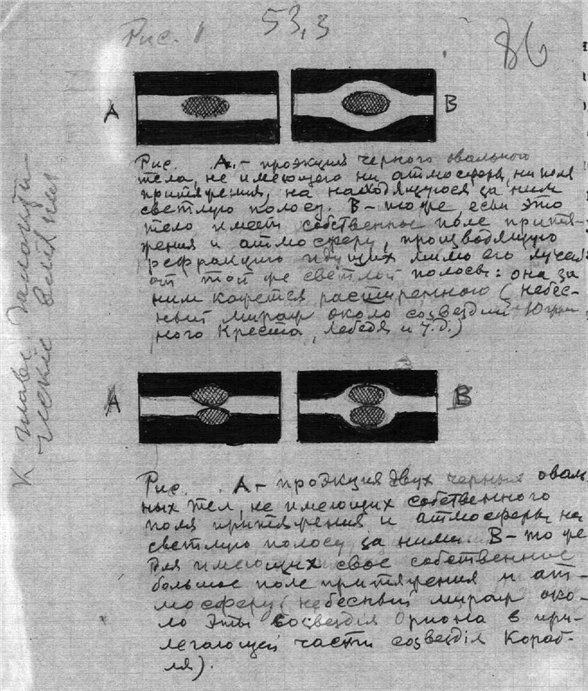 Рис. 1
53,3
86
А
В
Рис. А.- проэкция черного овального
тела, не имеющего ни атмосферы, ни поля
притяжения, на находящуюся за ним
светлую полосу. В - то же, если это
тело имеет собственное поле притя-
жения и атмосферу, производящую
рефракцию идущих мимо его лучей
от той же светлой полосы: она за
ним кажется расширенною (небес-
ный мираж около созвездий Юж
ного Креста, Лебедя и т.д.)
А
В
Рис. А - проэкция двух черных оваль
ных тел, не имеющих собственного
поля притяжения и атмосферы на
светлую полосу за ними. В - то же
для имеющих свое собственное
большое поле притяжения и ат-
мосферу (небесный мираж око-
ло Эты созвездія Ориона в при-
легающей части созвездія Кораб-
ля).
К главе